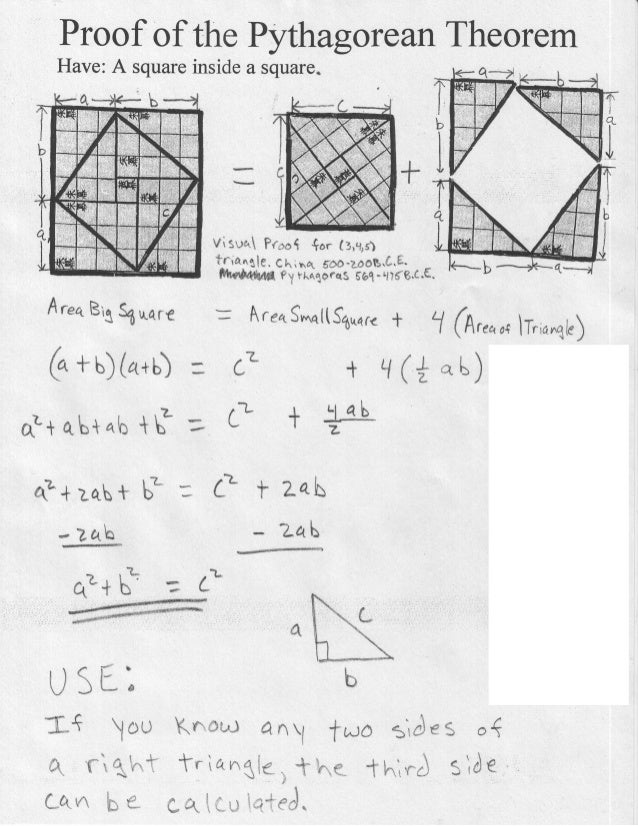 Proof of the Pythagorean Theorem
Have: A square inside a square.
a b
a b
c
b
a
c
=
c
c
+
b
a
a
b
b a
Visual Proof for (3,4,5)
triangle. China 500-200B.C.E.
Pythagoras 569-475 B.C.E.
Area Big Square = Area Small Square + 4 (Area of 1 Triangle)
(a+b)(a+b) = c² + 4(½ ab)
a²+ab+ab+b² = c² + 4ab/2
a²+2ab+b² = c² + 2ab
-2ab - 2ab
a²+b² = c²
a
c
b
USE:
If you know any two sides of
a right triangle, the third side
can be calculated.